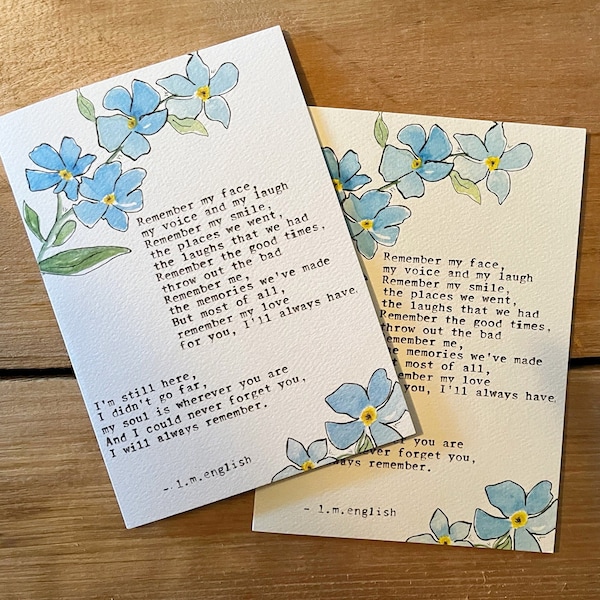 Remember my face,
my voice and my laugh
Remember my smile,
the places we went,
the laughs that we had
Remember the good times,
throw out the bad
Remember me,
the memories we've made
But most of all,
remember my love
for you, I'll always have.
I'm still here,
I didn't go far,
my soul is wherever you are
And I could never forget you,
I will always remember.
- l.m.english
Remember my face,
my voice and my laugh
Remember my smile,
the places we went,
the laughs that we had
Remember the good times,
throw out the bad
emember me,
e memories we've made
most of all,
emember my love
you, I'll always have
you are
ever forget you,
ays remember.
- l.m.english